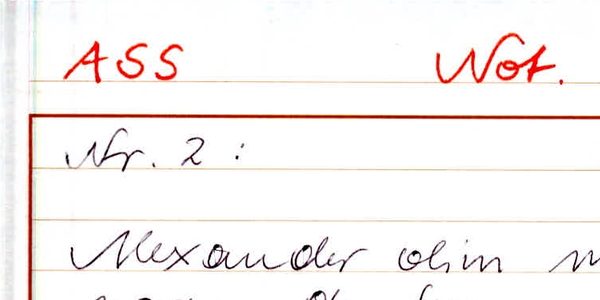 ASS Not.
Nr. 2 :
Alexander olim